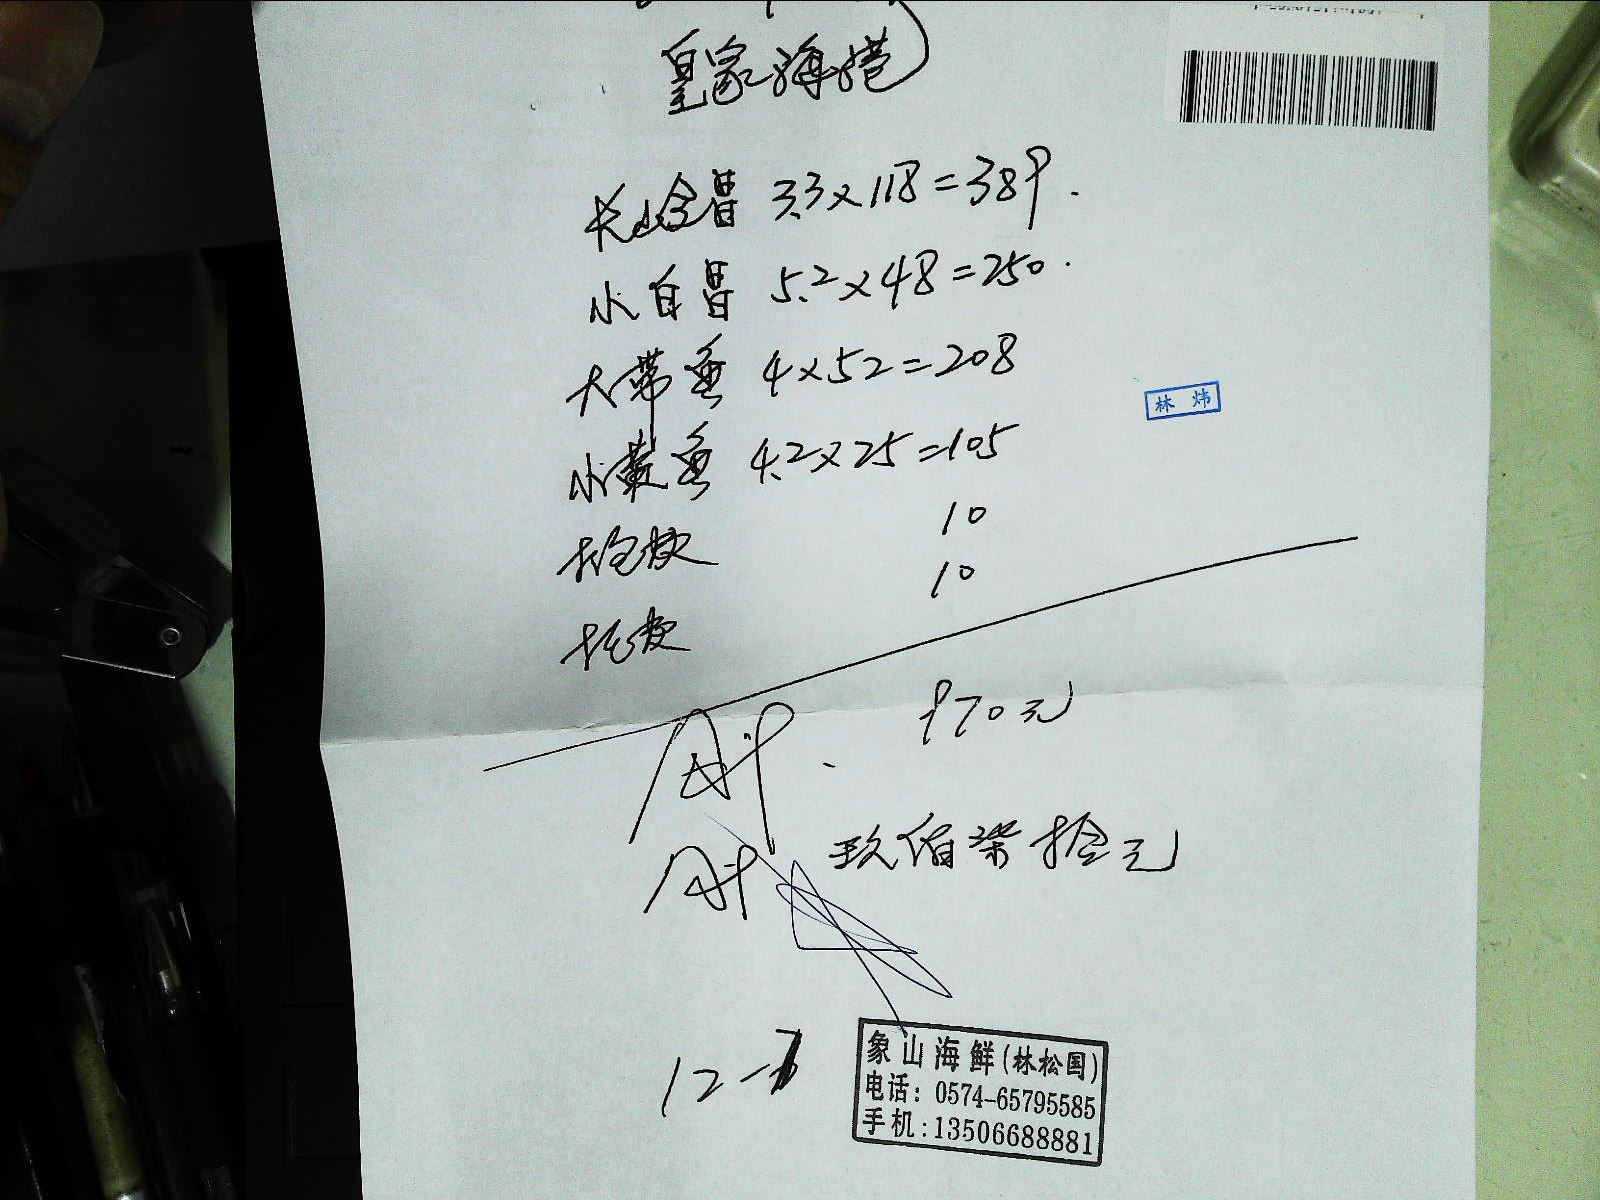 皇家海港
3.3×118=389.
小白 5.2×48=250.
大带鱼 4×52=208
小黄鱼 4.2×25=105
10
10
970元
玖佰柒拾元
林炜
12-7
象山海鲜(林松国)
电话：0574-65795585
手机:13506688881